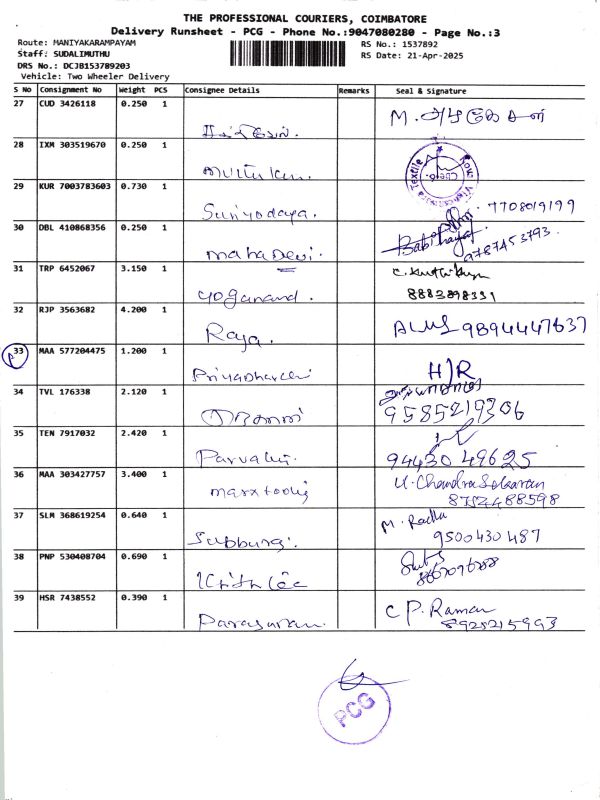 THE PROFESSIONAL COURIERS, COIMBATORE
Delivery Runsheet - PCG - Phone No.:9047080280 - Page No.:3
Route: MANIYAKARAMPAYAM
Staff: SUDALIMUTHU
DRS No.: DCJB153789203
Vehicle: Two Wheeler Delivery
RS No.: 1537892
RS Date: 21-Apr-2025
S No Consignment No Weight PCS Consignee Details Remarks Seal & Signature
27 CUD 3426118 0.250 1 M.
28 IXM 303519670 0.250 1
29 KUR 7003783603 0.730 1 Suriyodaya. 7708019199
30 DBL 410868356 0.250 1 mahaDevi. 9787453793.
31 TRP 6452067 3.150 1 yoganand.
8883898331
32 RJP 3563682 4.200 1 Raja. 9894447637
33 MAA 577204475 1.200 1 Priyadharceni H)R
P
34 TVL 176338 2.120 1 9585219306
35 TEN 7917032 2.420 1 Parvathy. 94430 49625
36 MAA 303427757 3.400 1 U. Chandra Sekaran
8754488598
37 SLM 368619254 0.640 1 Subburaj. M. Radha
9500430487
38 PNP 530408704 0.690 1
39 HSR 7438552 0.390 1 Parasuram. C P. Raman
8925215993
PCG